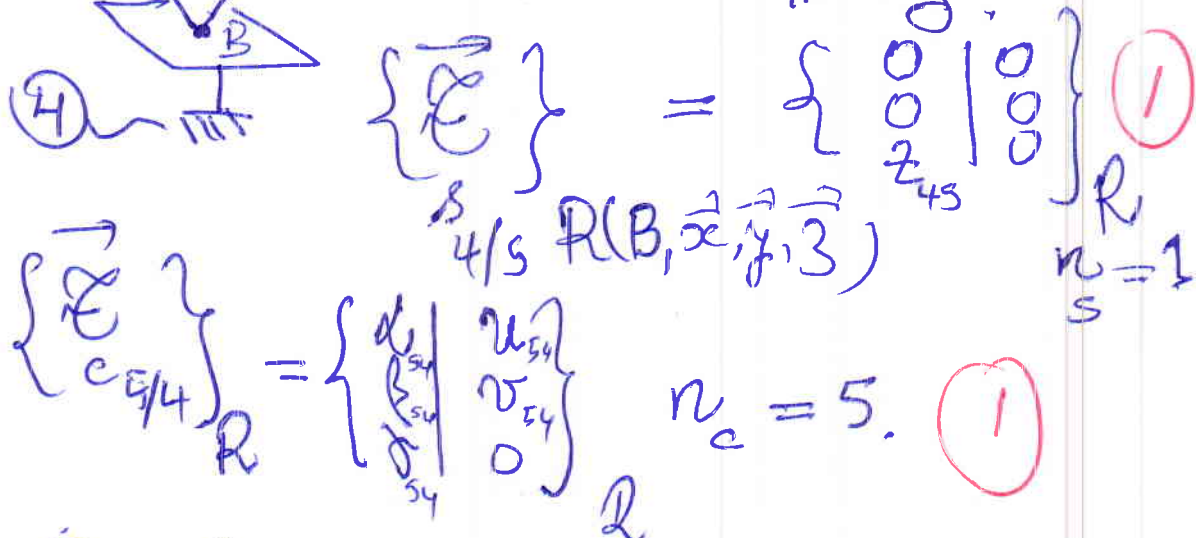 B
4
{𝒯 s 4/5} = {0 0 Z₄₅ | 0 0 0}R 1
R(B, x⃗, y⃗, z⃗)
n_s = 1
{𝒯 c 5/4}R = {α₅₄ β₅₄ γ₅₄ | u₅₄ v₅₄ 0}R n_c = 5. 1